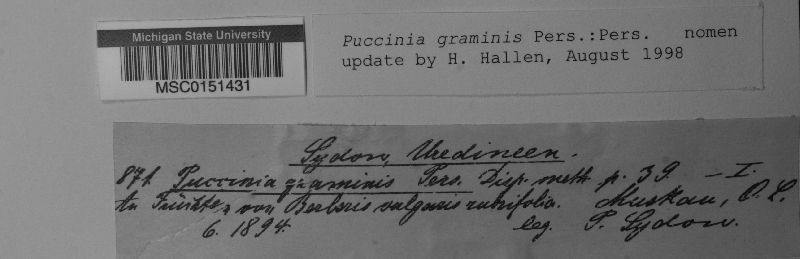 Michigan State University
MSC0151431
Puccinia graminis Pers.:Pers. nomen
update by H. Hallen, August 1998
Sydow, Uredineen.
871. Puccinia graminis Pers. Disp. meth. p. 39 — I.
An Früchten von Berberis vulgaris rubrifolia. Muskau, O. L.
6. 1894. leg. P. Sydow.